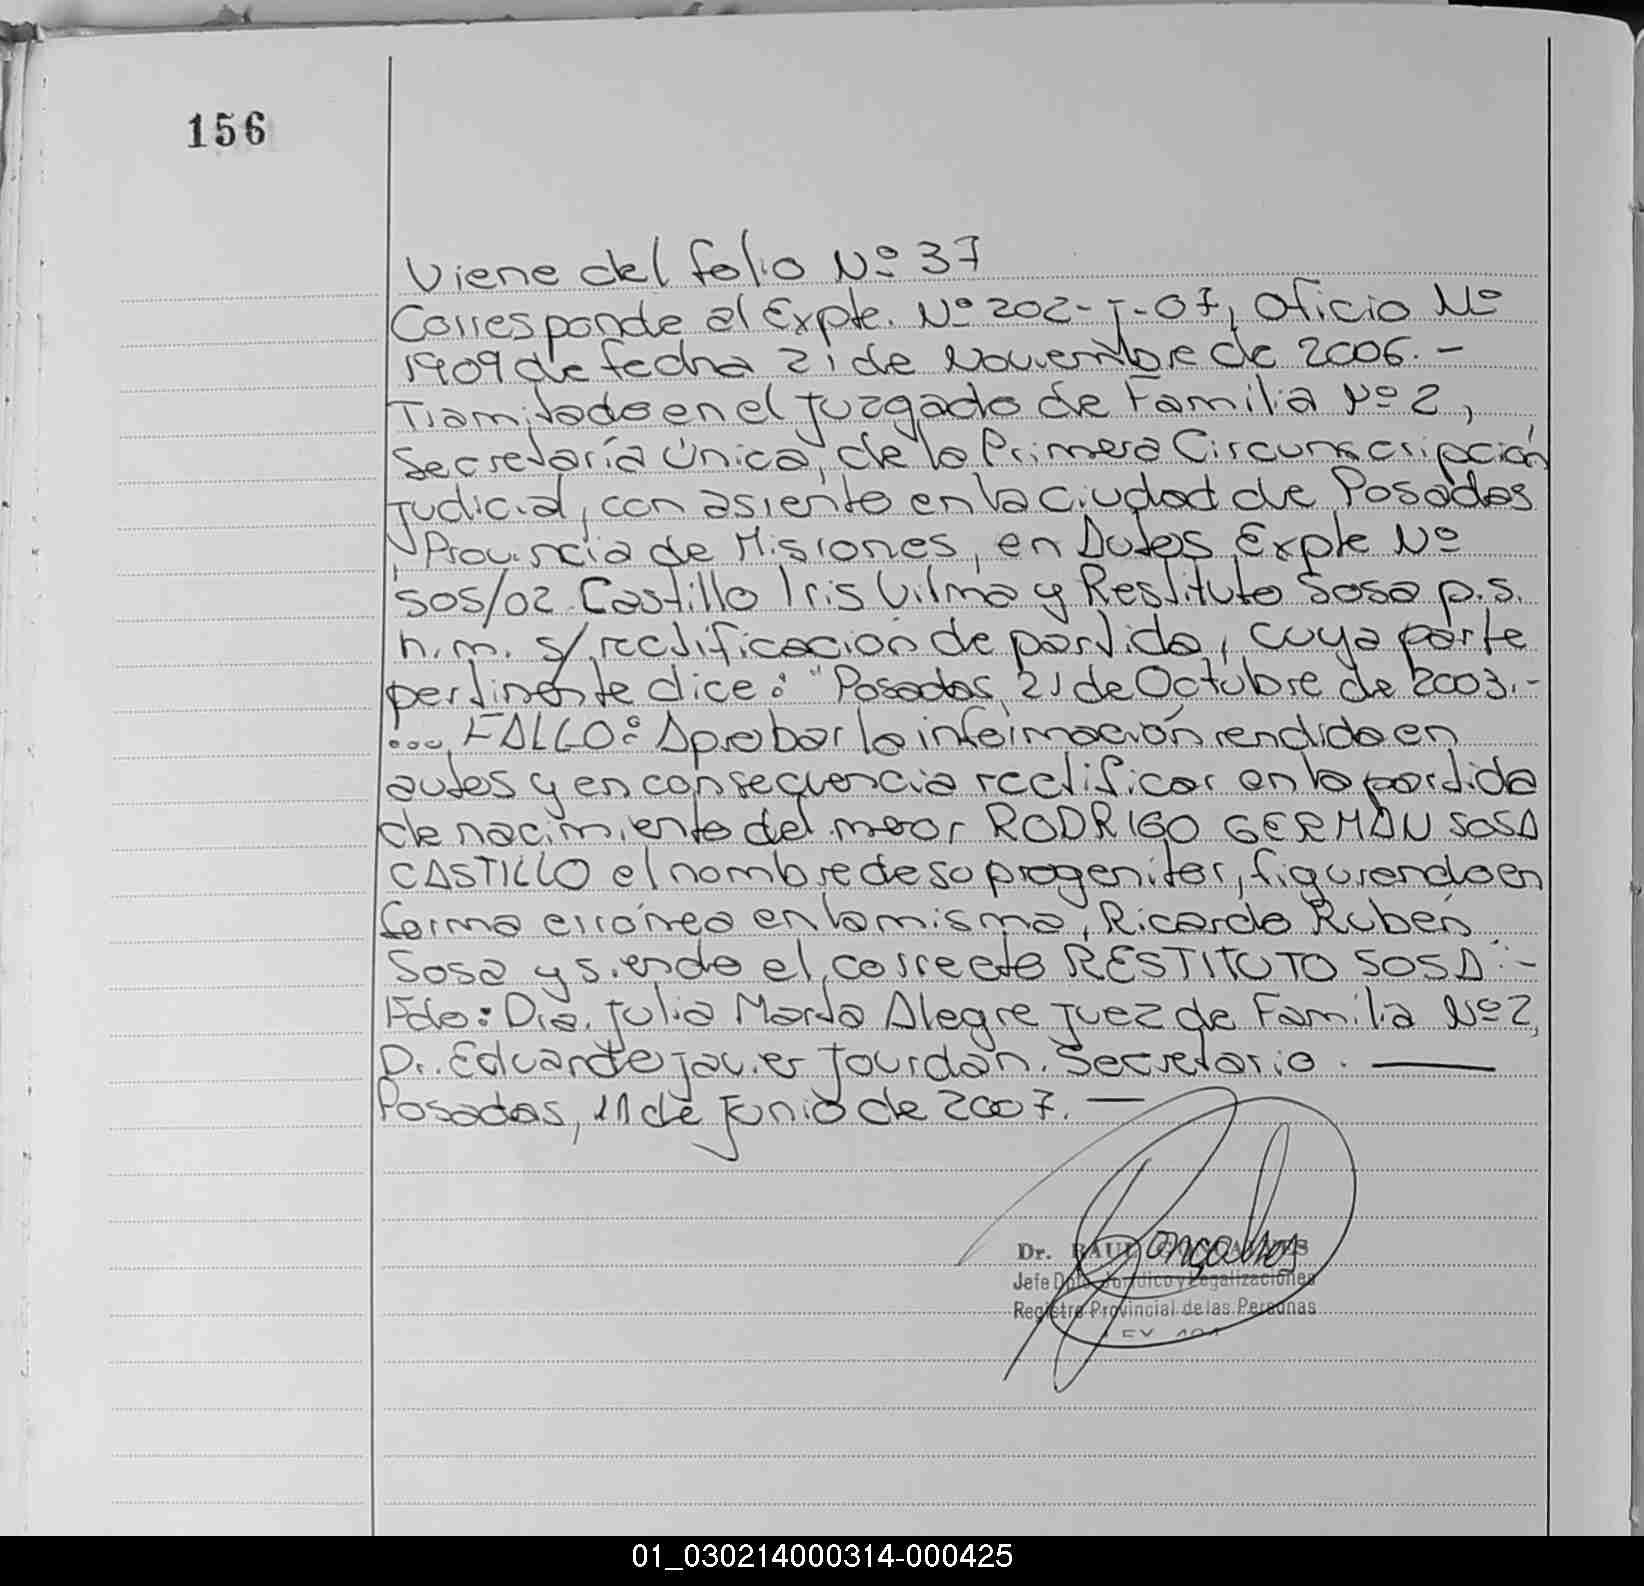 156
Viene del folio Nº 37
Corresponde al Expte. Nº 202-J-07, Oficio Nº
1909 de fecha 21 de Noviembre de 2006.-
Tramitado en el Juzgado de Familia Nº 2,
Secretaría Única, de la Primera Circunscripción
Judicial, con asiento en la Ciudad de Posadas
, Provincia de Misiones, en Autos Expte Nº
505/02 Castillo Iris Vilma y Restituto Sosa p.s.
h.m. s/ rectificación de partida, cuya parte
pertinente dice: "Posadas, 21 de Octubre de 2003.-
... FALLO: Aprobar la información rendida en
autos y en consecuencia rectificar en la partida
de nacimiento del menor RODRIGO GERMAN SOSA
CASTILLO el nombre de su progenitor, figurando en
forma errónea en la misma, Ricardo Rubén
Sosa y siendo el correcto RESTITUTO SOSA".-
Fdo: Dra. Julia Marta Alegre Juez de Familia Nº 2,
Dr. Eduardo Javier Jourdan. Secretario.
Posadas, 11 de Junio de 2007. —
Dr. RAUL
Gonçalves
Jefe Dpto. Jurídico y Legalizaciones
Registro Provincial de las Personas
01_030214000314-000425